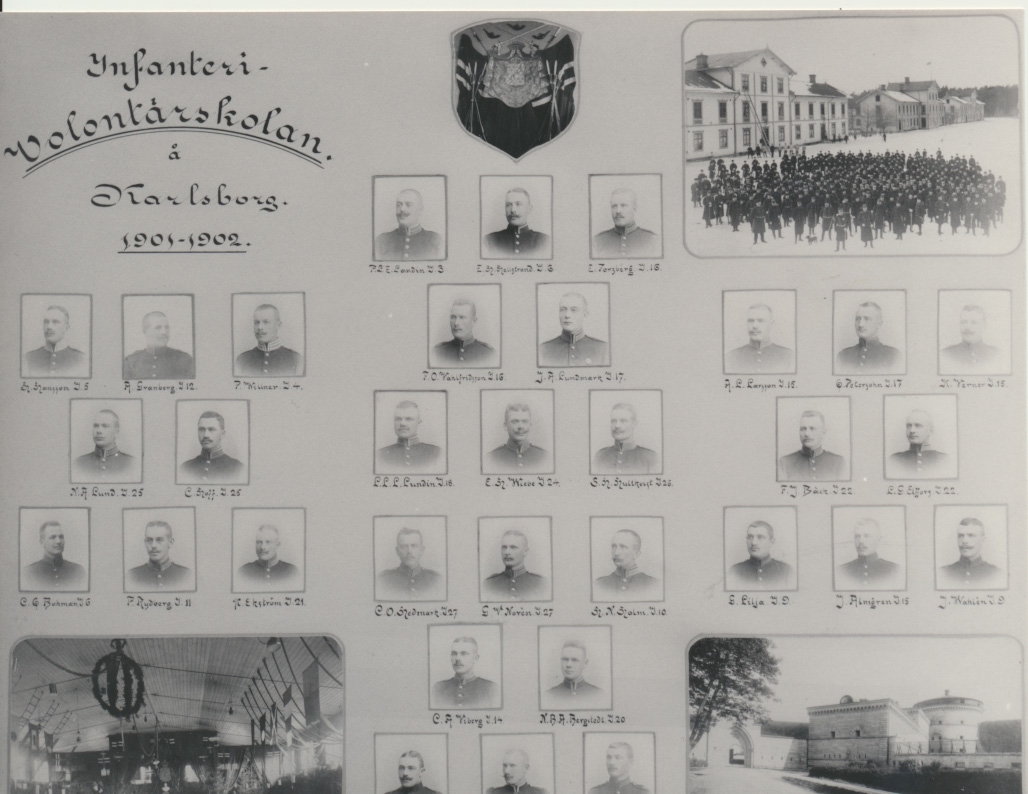 Infanteri-
Volontärskolan.
å
Karlsborg.
1901-1902.
P.L.E. Lundin I.3.
E. H. I.6
E. Forsberg I.16.
H. Hansson I.5
A. Granberg I.12.
F. Willner I.4.
F.O. Vahlfridsson I.16.
J.A. Lundmark I.17.
A.L. Larsson I.15.
C. Petersohn I.17
K. Verner I.15.
N.A. Lund. I.25
C. Hoff. I.25
L.L.L. Lundin I.16.
E.H. Wiebe I.24
S.H. Hultkvist I.25.
F.J. Bäck I.22
I.22.
C.G. Bohman I.6
P. Rydberg I.11
K. Ekström I.21.
C.O. Hedmark I.27
G.W. Norén I.27
H.N. Holm I.10.
E. Lilja I.9.
J. Almgren I.15
J. Wahlén I.9
C.A. Viberg I.14
N.B.A. Bergstedt I.20